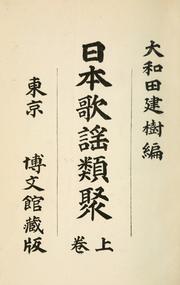 大和田建樹編
日本歌謡類聚
上卷
東京
博文館藏版